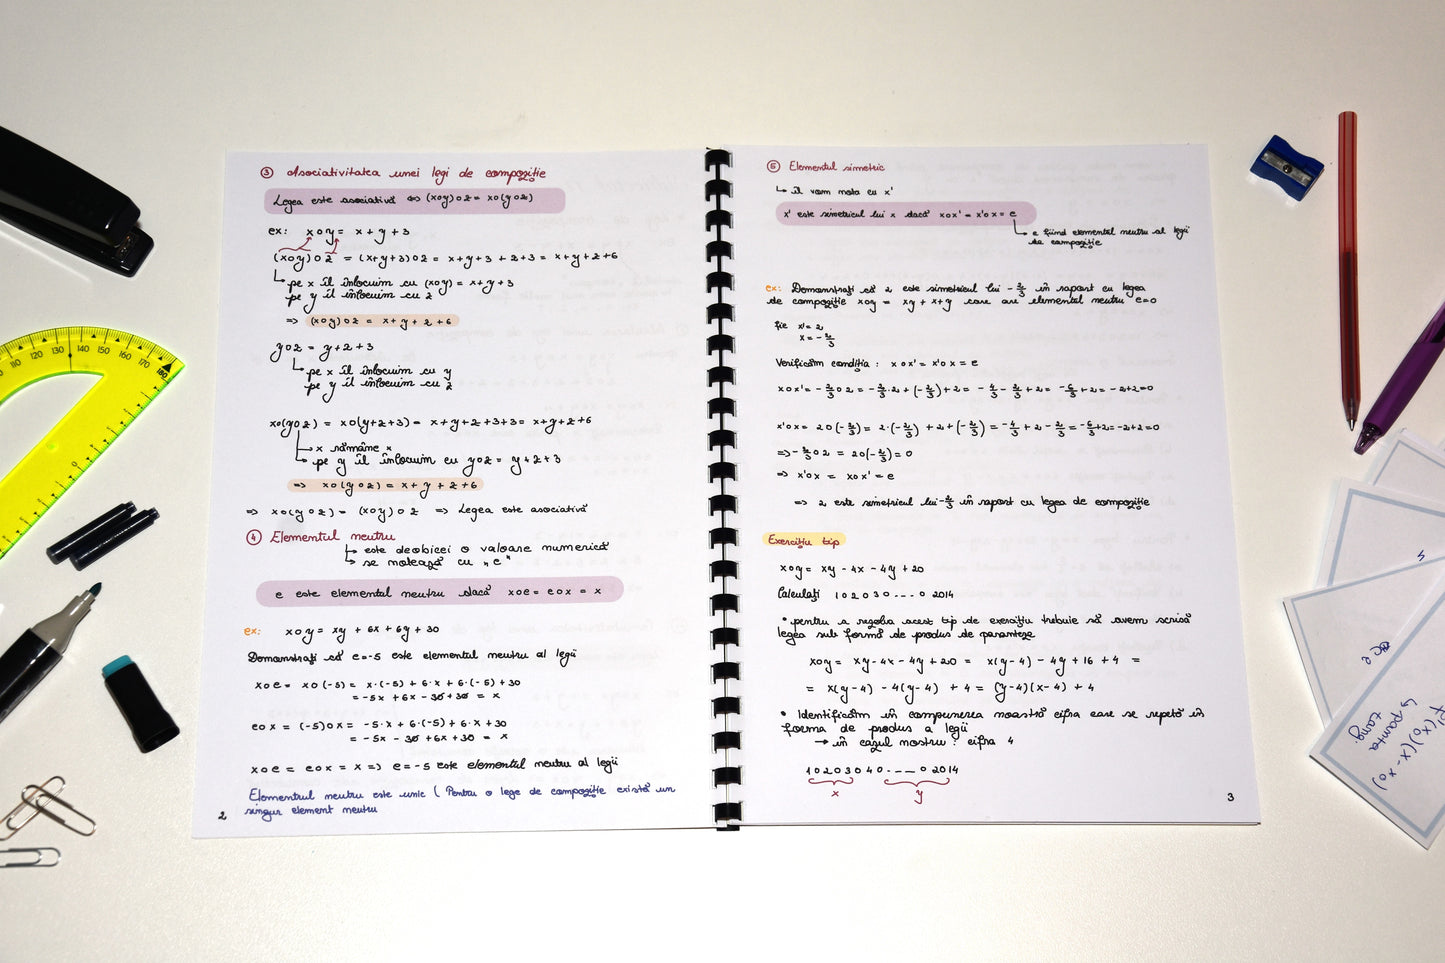 ③ Asociativitatea unei legi de compoziție
Legea este asociativă ⇔ (x∘y)∘z = x∘(y∘z)
ex: x∘y = x + y + 3
(x∘y)∘z = (x+y+3)∘z = x+y+3 + z+3 = x+y+z+6
↳ pe x îl înlocuim cu (x∘y) = x+y+3
pe y îl înlocuim cu z
=> (x∘y)∘z = x+y+z+6
y∘z = y+z+3
↳ pe x îl înlocuim cu y
pe y îl înlocuim cu z
x∘(y∘z) = x∘(y+z+3) = x+y+z+3+3 = x+y+z+6
↳ x rămâne x
↳ pe y îl înlocuim cu y∘z = y+z+3
=> x∘(y∘z) = x+y+z+6
=> x∘(y∘z) = (x∘y)∘z => Legea este asociativă
④ Elementul neutru
↳ este deobicei o valoare numerică
↳ se notează cu "e"
e este elementul neutru dacă x∘e = e∘x = x
ex: x∘y = xy + 6x + 6y + 30
Demonstrați că e=-5 este elementul neutru al legii
x∘e = x∘(-5) = x·(-5) + 6·x + 6·(-5) + 30
= -5x + 6x - 30 + 30 = x
e∘x = (-5)∘x = -5·x + 6·(-5) + 6·x + 30
= -5x - 30 + 6x + 30 = x
x∘e = e∘x = x => e=-5 este elementul neutru al legii
Elementrul neutru este unic ( Pentru o lege de compoziție există un
singur element neutru
2
⑤ Elementul simetric
↳ îl vom nota cu x'
x' este simetricul lui x dacă x∘x' = x'∘x = e
↳ e fiind elementul neutru al legii
de compoziție
ex: Demonstrați că 2 este simetricul lui -2/3 în raport cu legea
de compoziție x∘y = xy + x+y care are elementul neutru e=0
fie x'=2
x=-2/3
Verificăm condiția : x∘x' = x'∘x = e
x∘x' = -2/3∘2 = -2/3·2 + (-2/3)+2 = -4/3-2/3+2 = -6/3+2 = -2+2=0
x'∘x = 2∘(-2/3) = 2·(-2/3) + 2+(-2/3) = -4/3+2-2/3 = -6/3+2=-2+2=0
=> -2/3∘2 = 2∘(-2/3) = 0
=> x'∘x = x∘x' = e
=> 2 este simetricul lui -2/3 în raport cu legea de compoziție
Exercițiu tip
x∘y = xy - 4x - 4y + 20
Calculați 1∘2∘3∘....∘2014
• pentru a rezolva acest tip de exercițiu trebuie să avem scrisă
legea sub formă de produs de paranteze
x∘y = xy-4x-4y+20 = x(y-4) - 4y+16 +4 =
= x(y-4) -4(y-4) +4 = (y-4)(x-4) + 4
• Identificăm în compunerea noastră cifra care se repetă în
forma de produs a legii
→ în cazul nostru : cifra 4
1∘2∘3∘4∘....∘2014
x y
3